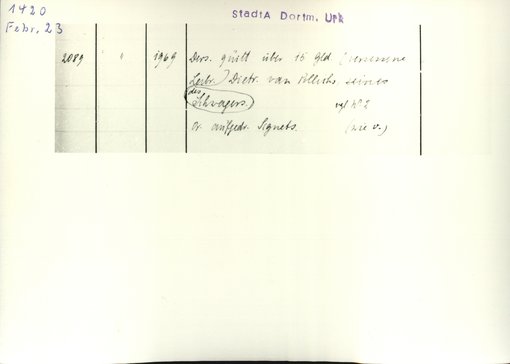 1420
Febr. 23
StadtA Dortm. Urk
2089 " 1969 Ders. quitt über 15 Gld
Leibr.) Dietr. van seines
des
Schwagers.) vgl N° 2
Or. aufgedr. Signets. (wie v.)